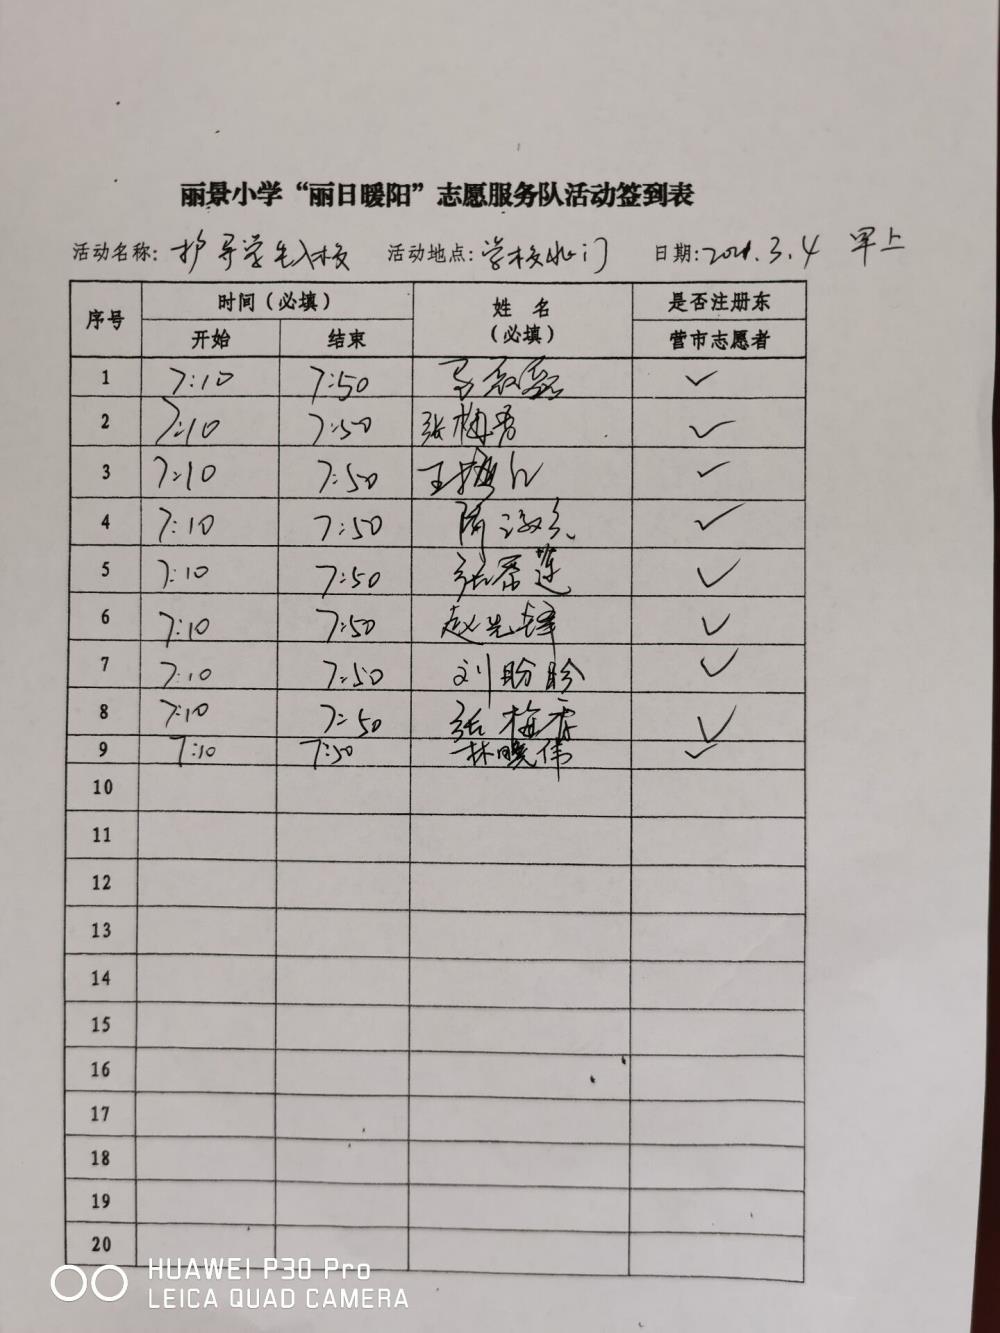 丽景小学“丽日暖阳”志愿服务队活动签到表
活动名称: 护导学生入校 活动地点: 学校北门 日期: 2021.3.4 早上
序号 时间（必填） 姓 名（必填） 是否注册东营市志愿者
开始 结束
1 7:10 7:50 ✓
2 7:10 7:50 张梅秀 ✓
3 7:10 7:50 王梅 ✓
4 7:10 7:50 ✓
5 7:10 7:50 张 莲 ✓
6 7:10 7:50 赵先锋 ✓
7 7:10 7:50 刘盼盼 ✓
8 7:10 7:50 张梅霞 ✓
9 7:10 7:50 林晓伟 ✓
10
11
12
13
14
15
16
17
18
19
20
HUAWEI P30 Pro
LEICA QUAD CAMERA